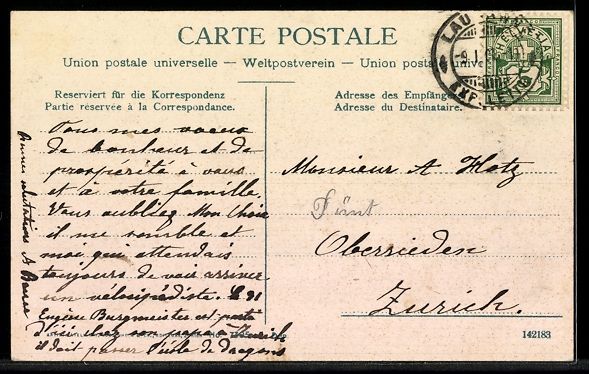 CARTE POSTALE
Union postale universelle — Weltpostverein — Union postale universelle
HELVETIA
LAUSANNE
EXP. LET
Reserviert für die Korrespondenz
Partie réservée à la Correspondance.
Adresse des Empfängers
Adresse du Destinataire.
Tous mes voeux
de bonheur et de
prospérité à vous
et à votre famille.
Vous oubliez Mon Choix
il me semble et
moi qui attendais
toujours de voir arriver
un vélocipédiste. Le 31
Eugène Burgmeister est parti
d'ici chez son à Zurich
il doit passer l'école de dragons
Bonnes salutations A
Monsieur A Hotz
Oberrieden
Zurich.
142183